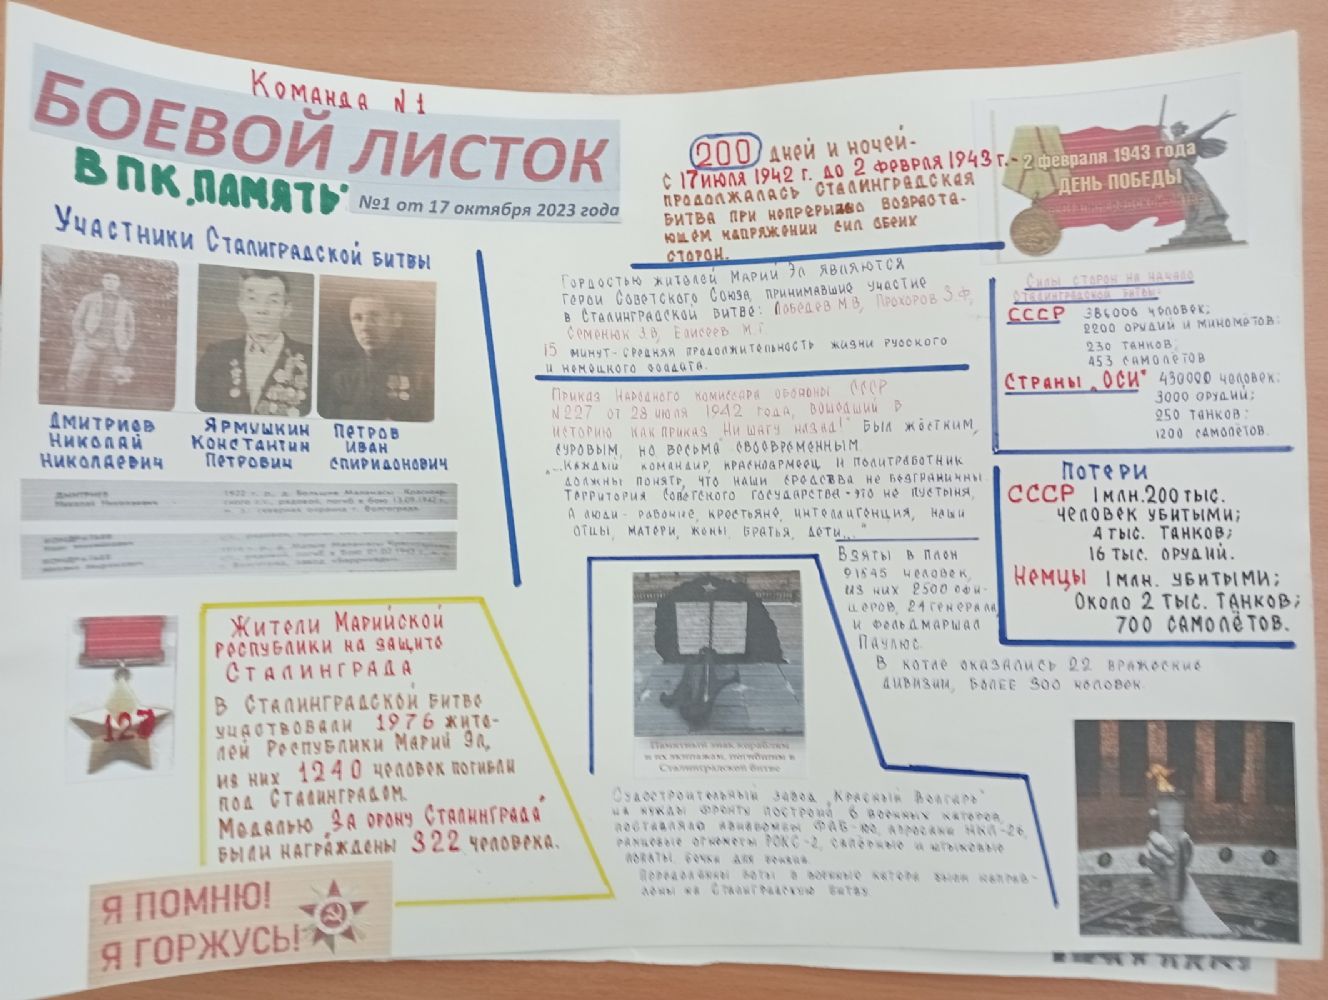 Команда №1
БОЕВОЙ ЛИСТОК
ВПК „ПАМЯТЬ"
№1 от 17 октября 2023 года
Участники Сталиградской битвы
Дмитриев
Николай
Николаевич
Ярмушкин
Константин
Петрович
Петров
Иван
Спиридонович
ДМИТРИЕВ
Николай Николаевич
200 дней и ночей-
с 17 июля 1942 г. до 2 февраля 1943 г.-
продолжалась Сталинградская
битва при непрерывно возраста-
ющем напряжении сил обеих
сторон.
2 февраля 1943 года
ДЕНЬ ПОБЕДЫ
Гордостью жителей Марий Эл являются
герои Советского Союза, принимавшие участие
в Сталинградской битве: Лебедев М.В, Прохоров З.Ф,
Семенюк З.В, Елисеев М.Г.
15 минут-средняя продолжительность жизни русского
и немецкого солдата.
Приказ Народного комиссара обороны СССР
№227 от 28 июля 1942 года, вошедший в
историю как приказ „Ни шагу назад!" был жёстким,
суровым, но весьма своевременным
„...Каждый командир, красноармеец и политработник
должны понять, что наши средства не безграничны.
Территория Советского государства-это не пустыня,
а люди- рабочие, крестьяне, интеллигенция, наши
отцы, матери, жены, братья, дети..."
Силы сторон на начало
сталинградской битвы:
СССР 386000 человек;
2200 орудий и миномётов;
230 танков;
453 самолётов
Страны „ОСИ" 430000 человек;
3000 орудий;
250 танков;
1200 самолётов.
Потери
СССР 1 млн. 200 тыс.
человек убитыми;
4 тыс. танков;
16 тыс. орудий.
Немцы 1 млн. убитыми;
около 2 тыс. танков;
700 самолётов.
Взяты в плен
91545 человек,
из них 2500 офи-
церов, 24 генерала
и фельдмаршал
Паулюс.
В котле оказались 22 вражеские
дивизии, более 300 человек.
127
Жители Марийской
республики на защите
Сталинграда
В Сталинградской битве
участвовали 1976 жите-
лей Республики Марий Эл,
из них 1240 человек погибли
под Сталинградом.
Медалью "За орону Сталинграда"
были награждены 322 человека.
Памятный знак кораблям
и их экипажам, погибшим в
Сталинградской битве
Судостроительный завод „Красный Волгарь"
на нужды фронту построил 6 военных катеров,
поставляло авиабомбы ФАБ-100,
ранцевые огнеметы РОКС-2, сапёрные и штыковые
лопаты, бочки для
Переделанны боты в военные катера были направ-
лены на Сталинградскую битву
Я ПОМНЮ!
Я ГОРЖУСЬ!